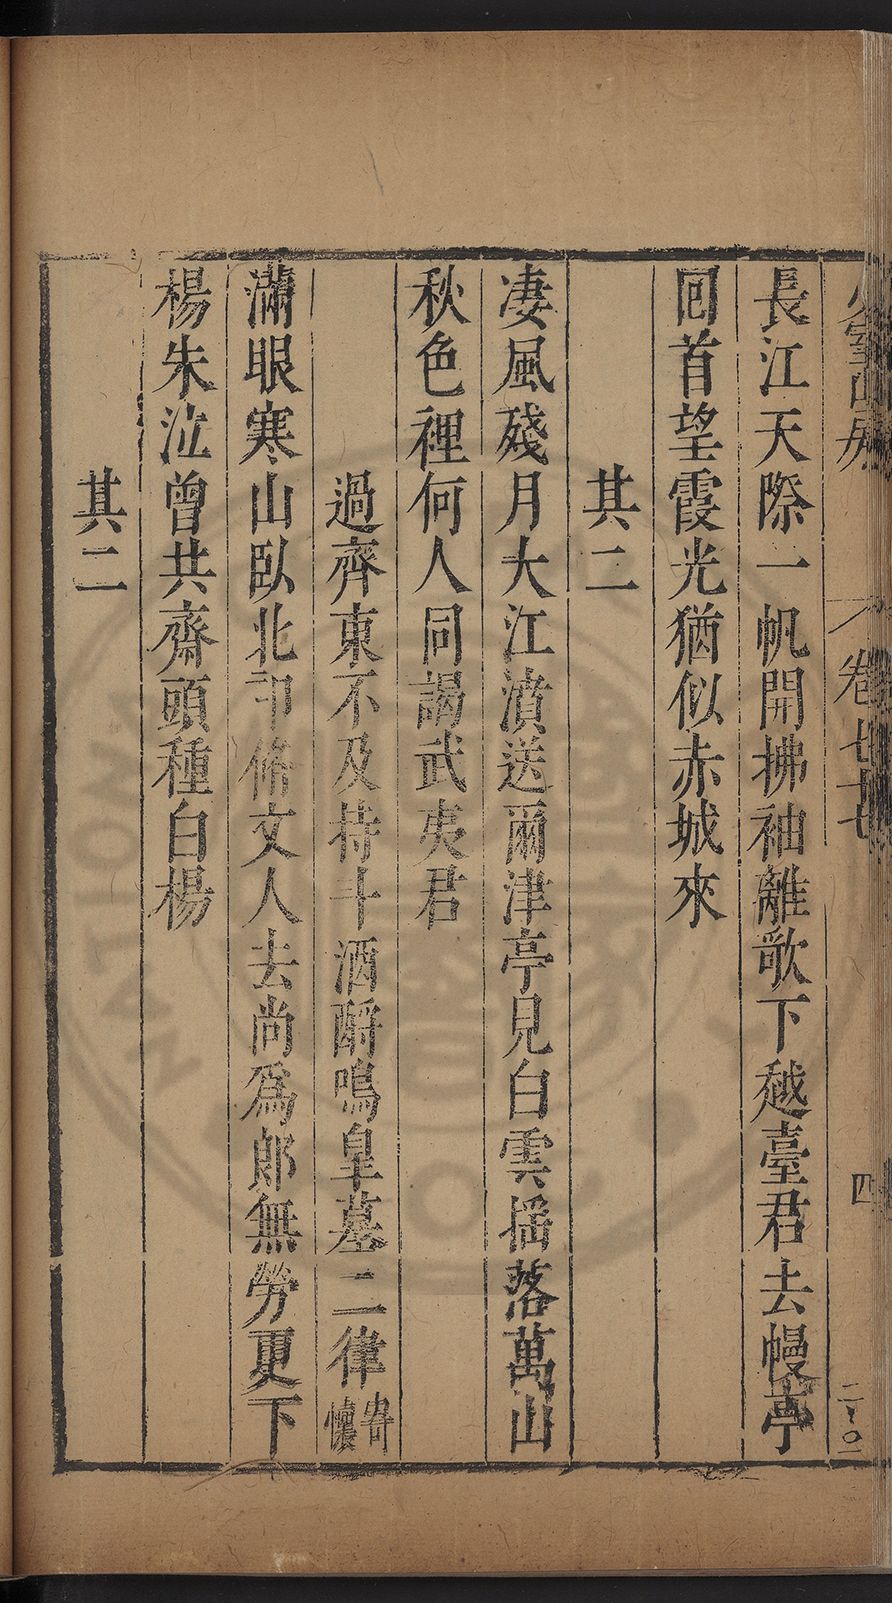 長江天際一帆開拂袖離歌下越臺君去幔亭
回首望霞光猶似赤城來
其二
凄風殘月大江濆送爾津亭見白雲揺落萬山
秋色裡何人同謁武夷君
過齊東不及持斗酒酹鳴皐墓二律寄懷
滿眼寒山臥北邙脩文人去尚爲郎無勞更下
楊朱泣曾共齋頭種白楊
其二
少室山房
卷七十七
四